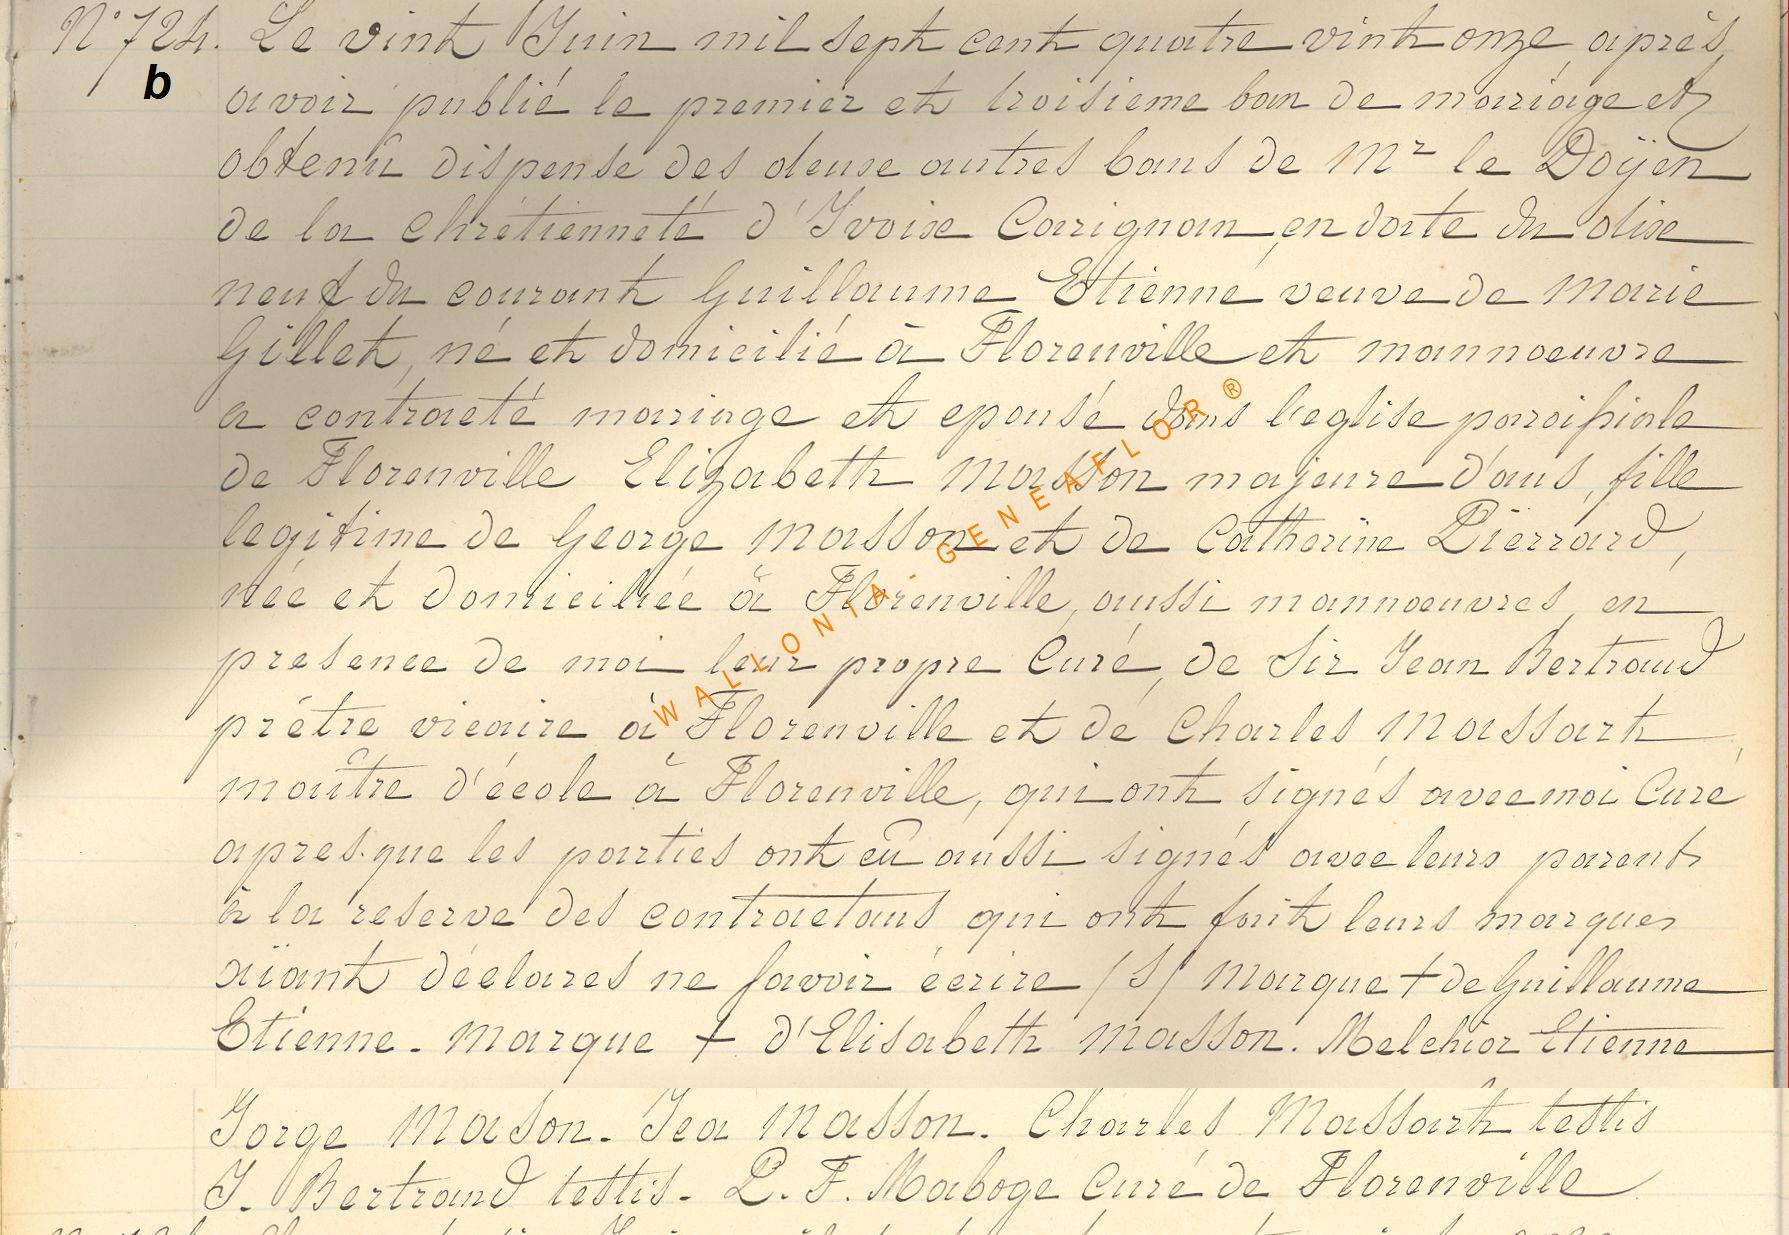 N° 724. Le vint Juin mil sept cent quatre vint onze, après
b
avoir publié le premier et troisieme ban de mariage et
obtenu dispense des deux autres bans de Mr le Doÿen
de la chrétienneté d'Yvoix Carignan, en date du dixe
neuf du courant Guillaume Etienne veuve de Marie
Gillet, né et domicilié à Florenville et mannoeuvre
a contracté mariage et epousé dans l'eglise paroissiale
de Florenville Elizabeth Masson majeure d'ans, fille
legitime de George Masson et de Catherine Pierrard,
née et domiciliée à Florenville, aussi mannoeuvres, en
presence de moi leur propre Curé, de Sir Jean Bertrand
prétre vicaire à Florenville et de Charles Massart
maître d'école à Florenville, qui ont signés avec moi Curé
apres que les parties ont eû aussi signés avec leurs parents
à la reserve des contractans qui ont fait leurs marques
aïant déclares ne savoir écrire /S/ Marque + de Guillaume
Etienne. Marque + d'Elisabeth Masson. Melchior Etienne
Jorge Mason. Jea Masson. Charles Massart testis
J. Bertrand testis. P. F. Maboge Curé de Florenville
WALLONIA - GENEAFLOR ®